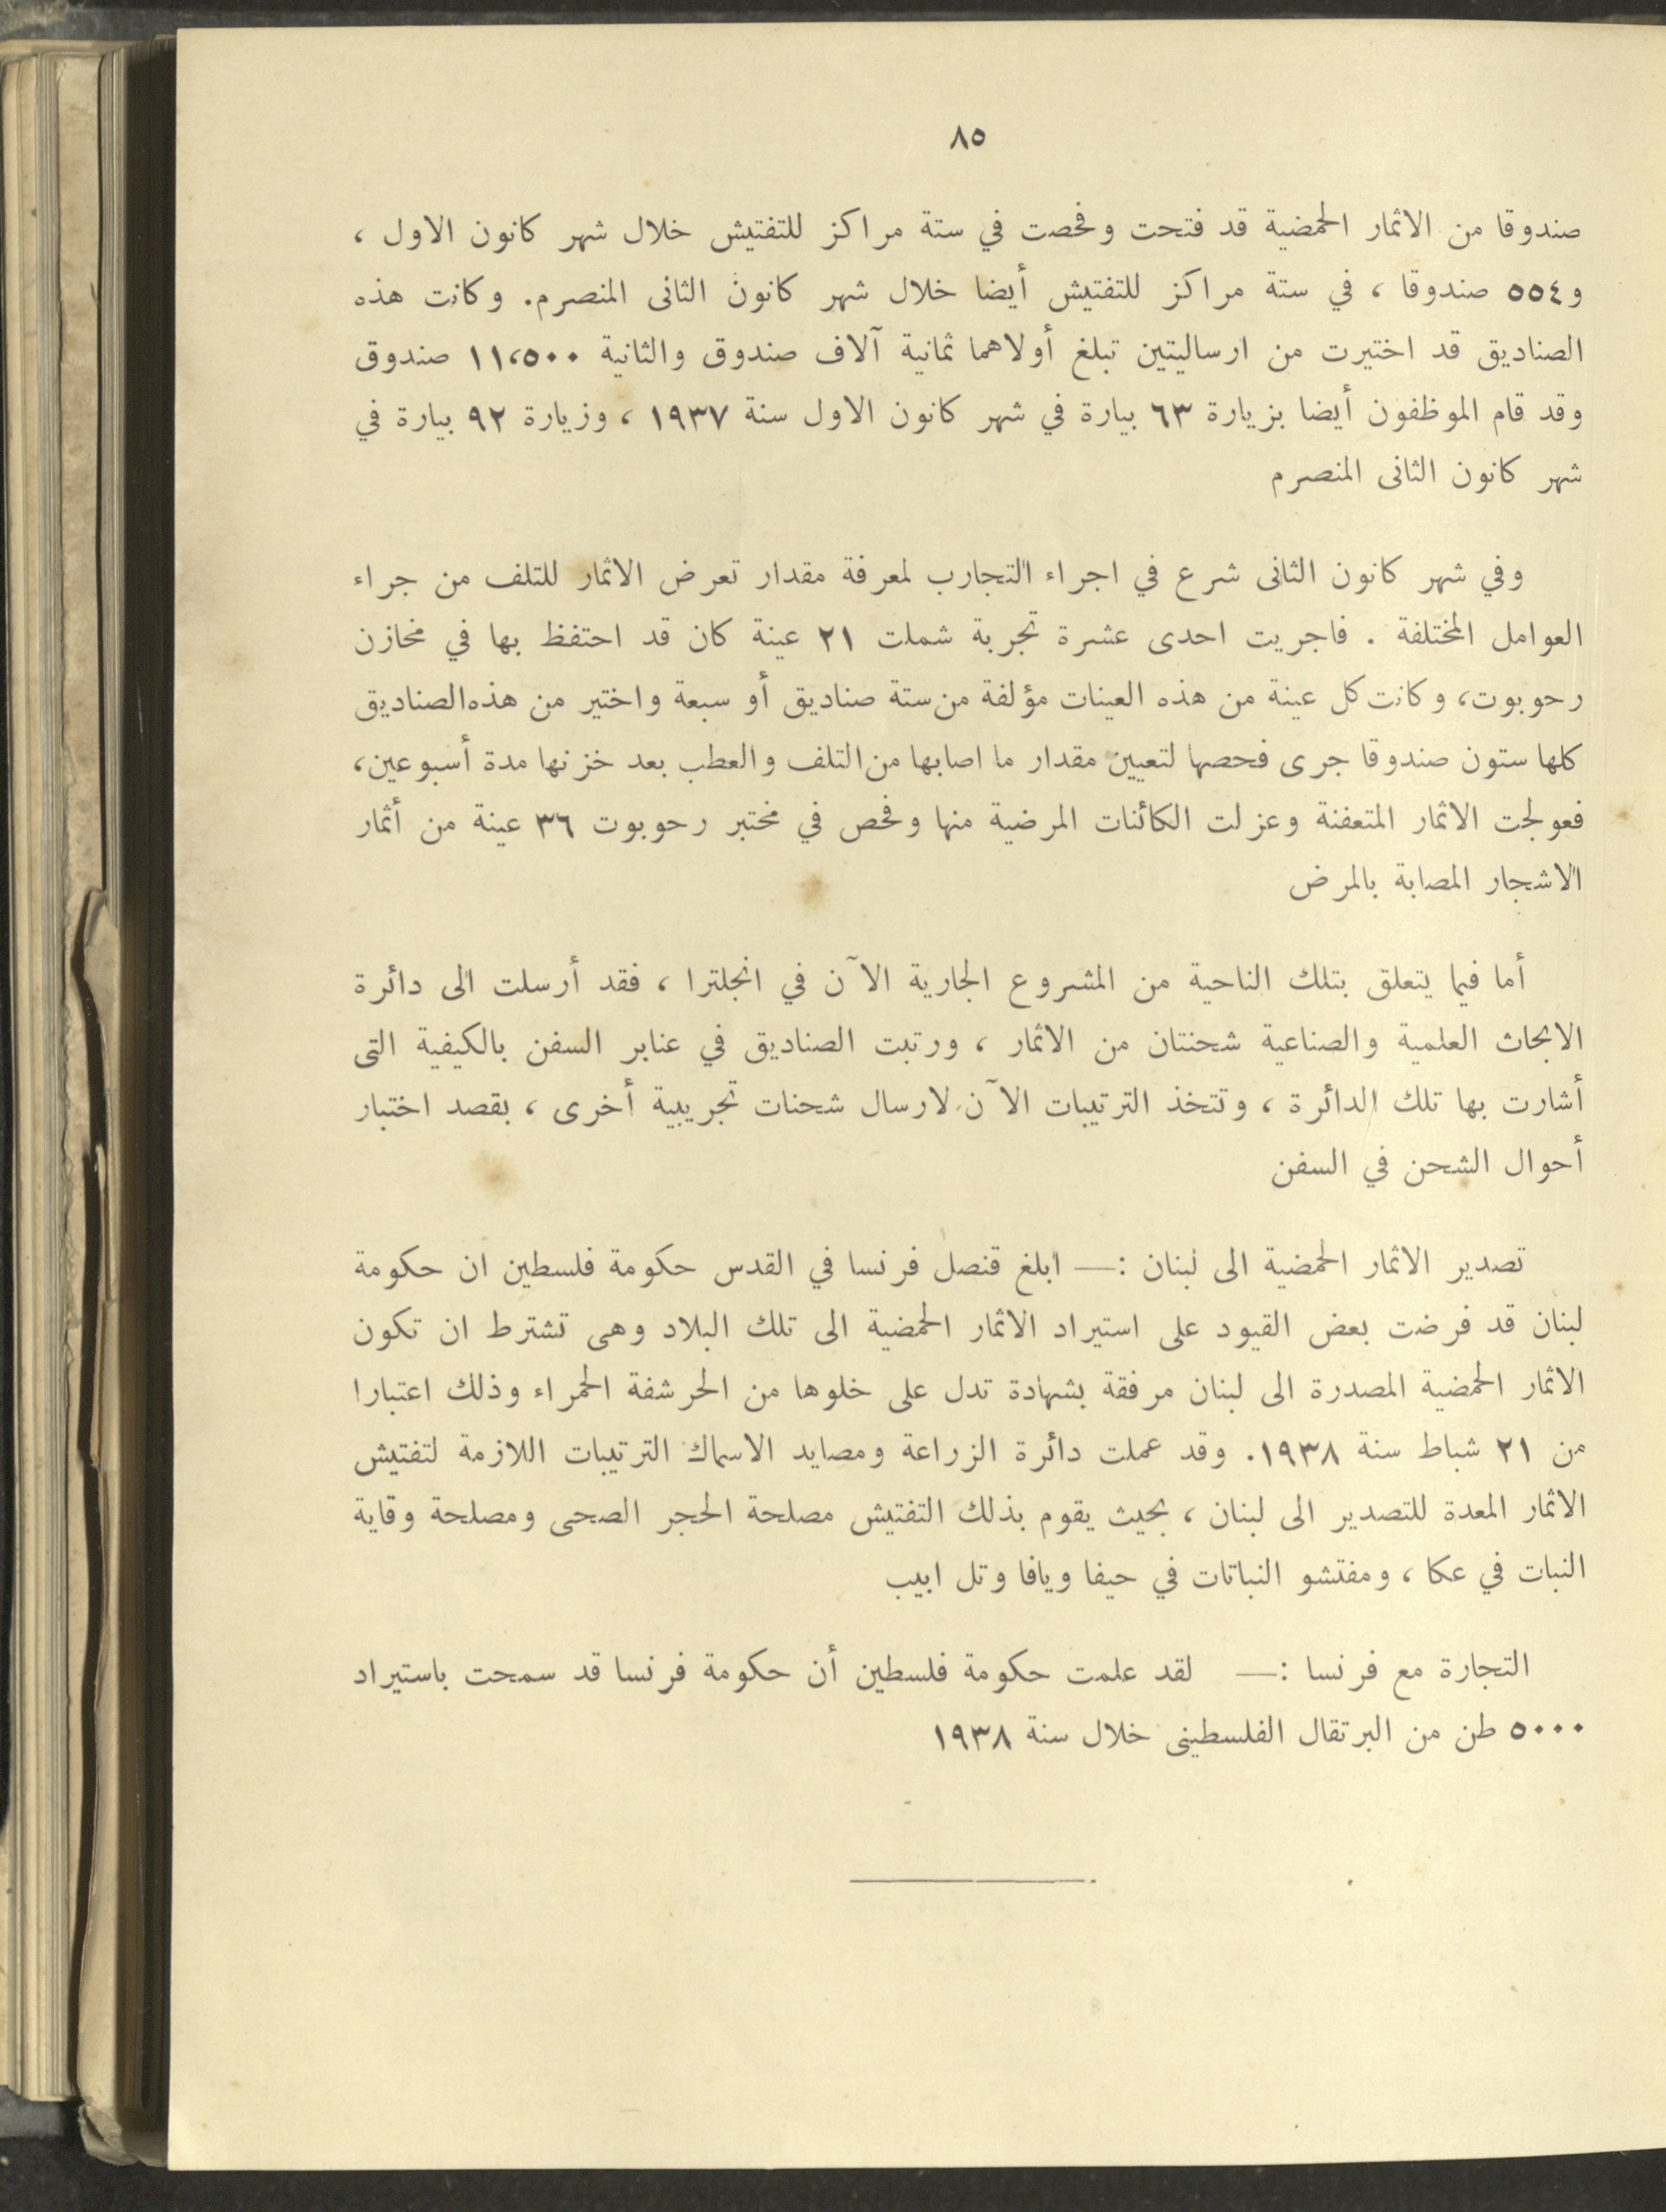 ٨٥
صندوقا من الاثمار الحمضية قد فتحت وفحصت في ستة مراكز للتفتيش خلال شهر كانون الاول ،
و٥٥٤ صندوقا ، في ستة مراكز للتفتيش أيضا خلال شهر كانون الثانى المنصرم. وكانت هذه
الصناديق قد اختيرت من ارساليتين تبلغ أولاهما ثمانية آلاف صندوق والثانية ١١،٥٠٠ صندوق
وقد قام الموظفون أيضا بزيارة ٦٣ بيارة في شهر كانون الاول سنة ١٩٣٧ ، وزيارة ٩٢ بيارة في
شهر كانون الثانى المنصرم
وفي شهر كانون الثانى شرع في اجراء التجارب لمعرفة مقدار تعرض الاثمار للتلف من جراء
العوامل المختلفة . فاجريت احدى عشرة تجربة شملت ٢١ عينة كان قد احتفظ بها في مخازن
رحوبوت، وكانت كل عينة من هذه العينات مؤلفة من ستة صناديق أو سبعة واختير من هذه الصناديق
كلها ستون صندوقا جرى فحصها لتعيين مقدار ما اصابها من التلف والعطب بعد خزنها مدة أسبوعين،
فعولجت الاثمار المتعفنة وعزلت الكائنات المرضية منها وفحص في مختبر رحوبوت ٣٦ عينة من أثمار
الاشجار المصابة بالمرض
أما فيما يتعلق بتلك الناحية من المشروع الجارية الآن في انجلترا ، فقد أرسلت الى دائرة
الابحاث العلمية والصناعية شحنتان من الاثمار ، ورتبت الصناديق في عنابر السفن بالكيفية التى
أشارت بها تلك الدائرة ، وتتخذ الترتيبات الآن لارسال شحنات تجريبية أخرى ، بقصد اختبار
أحوال الشحن في السفن
تصدير الاثمار الحمضية الى لبنان :— ابلغ قنصل فرنسا في القدس حكومة فلسطين ان حكومة
لبنان قد فرضت بعض القيود على استيراد الاثمار الحمضية الى تلك البلاد وهى تشترط ان تكون
الاثمار الحمضية المصدرة الى لبنان مرفقة بشهادة تدل على خلوها من الحرشفة الحمراء وذلك اعتبارا
من ٢١ شباط سنة ١٩٣٨. وقد عملت دائرة الزراعة ومصايد الاسماك الترتيبات اللازمة لتفتيش
الاثمار المعدة للتصدير الى لبنان ، بحيث يقوم بذلك التفتيش مصلحة الحجر الصحى ومصلحة وقاية
النبات في عكا ، ومفتشو النباتات في حيفا ويافا وتل ابيب
التجارة مع فرنسا :— لقد علمت حكومة فلسطين أن حكومة فرنسا قد سمحت باستيراد
٥٠٠٠ طن من البرتقال الفلسطينى خلال سنة ١٩٣٨